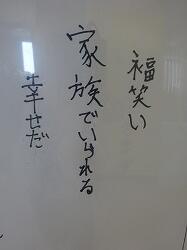 福笑い
家族でいられる
幸せだ